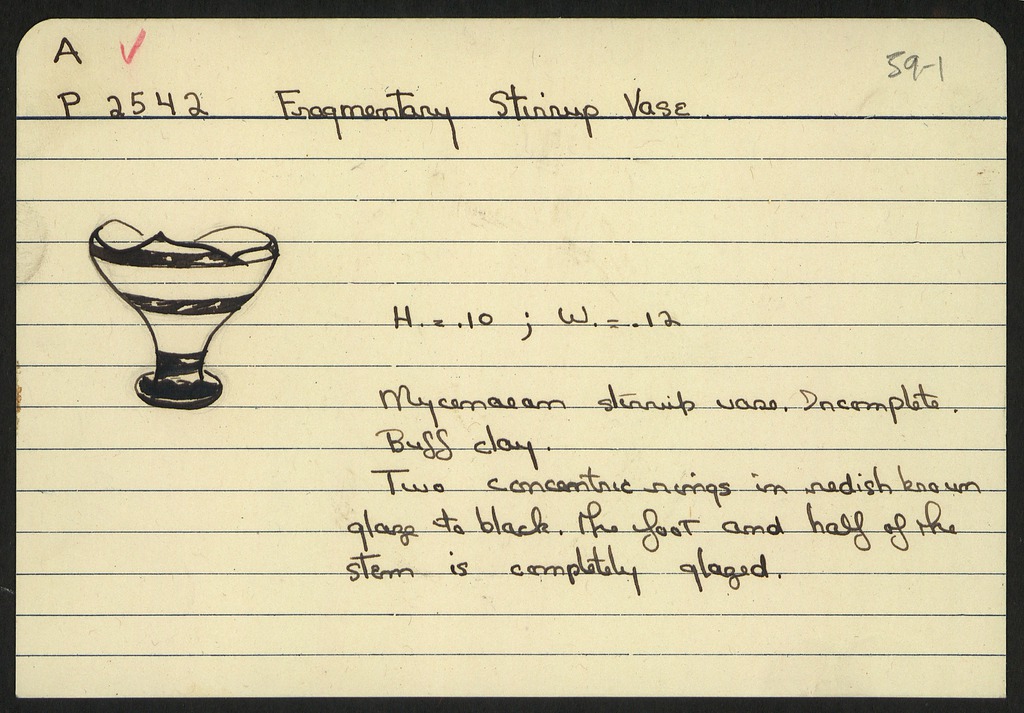 A ✓ 59-1
P 2542 Fragmentary Stirrup Vase
H. = .10 ; W. = .12
Mycenaean stirrup vase. Incomplete.
Buff clay.
Two concentric rings in redish brown
glaze to black. The foot and half of the
stem is completely glazed.